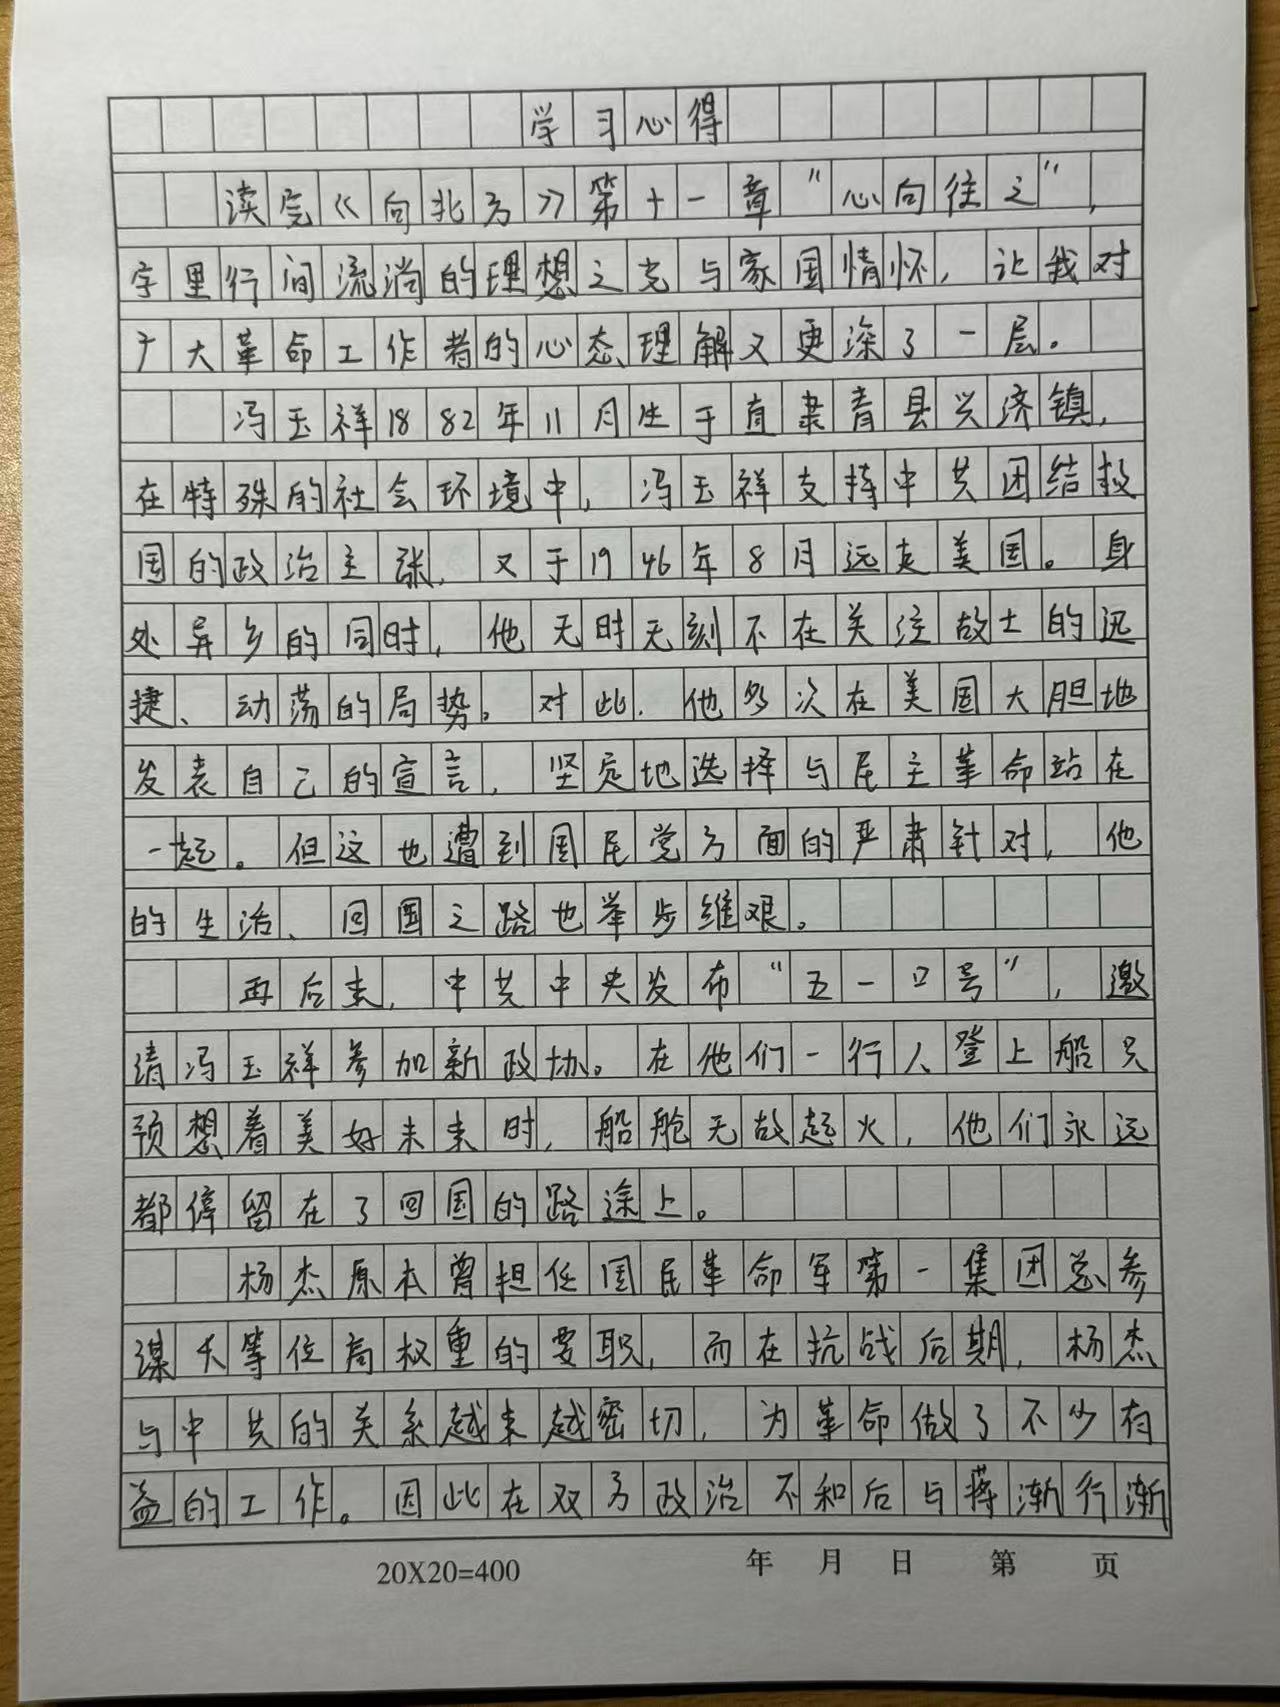 学习心得
读完《向北方》第十一章“心向往之”，
字里行间流淌的理想之光与家国情怀，让我对
广大革命工作者的心态理解又更深了一层。
冯玉祥1882年11月生于直隶青县兴济镇，
在特殊的社会环境中，冯玉祥支持中共团结救
国的政治主张，又于1946年8月远走美国。身
处异乡的同时，他无时无刻不在关注故土的迅
捷、动荡的局势。对此，他多次在美国大胆地
发表自己的宣言，坚定地选择与民主革命站在
一起。但这也遭到国民党方面的严肃针对，他
的生活、回国之路也举步维艰。
再后来，中共中央发布“五一口号”，邀
请冯玉祥参加新政协。在他们一行人登上船只
预想着美好未来时，船舱无故起火，他们永远
都停留在了回国的路途上。
杨杰原本曾担任国民革命军第一集团总参
谋长等位高权重的要职，而在抗战后期，杨杰
与中共的关系越来越密切，为革命做了不少有
益的工作。因此在双方政治不和后与蒋渐行渐
20X20=400 年 月 日 第 页